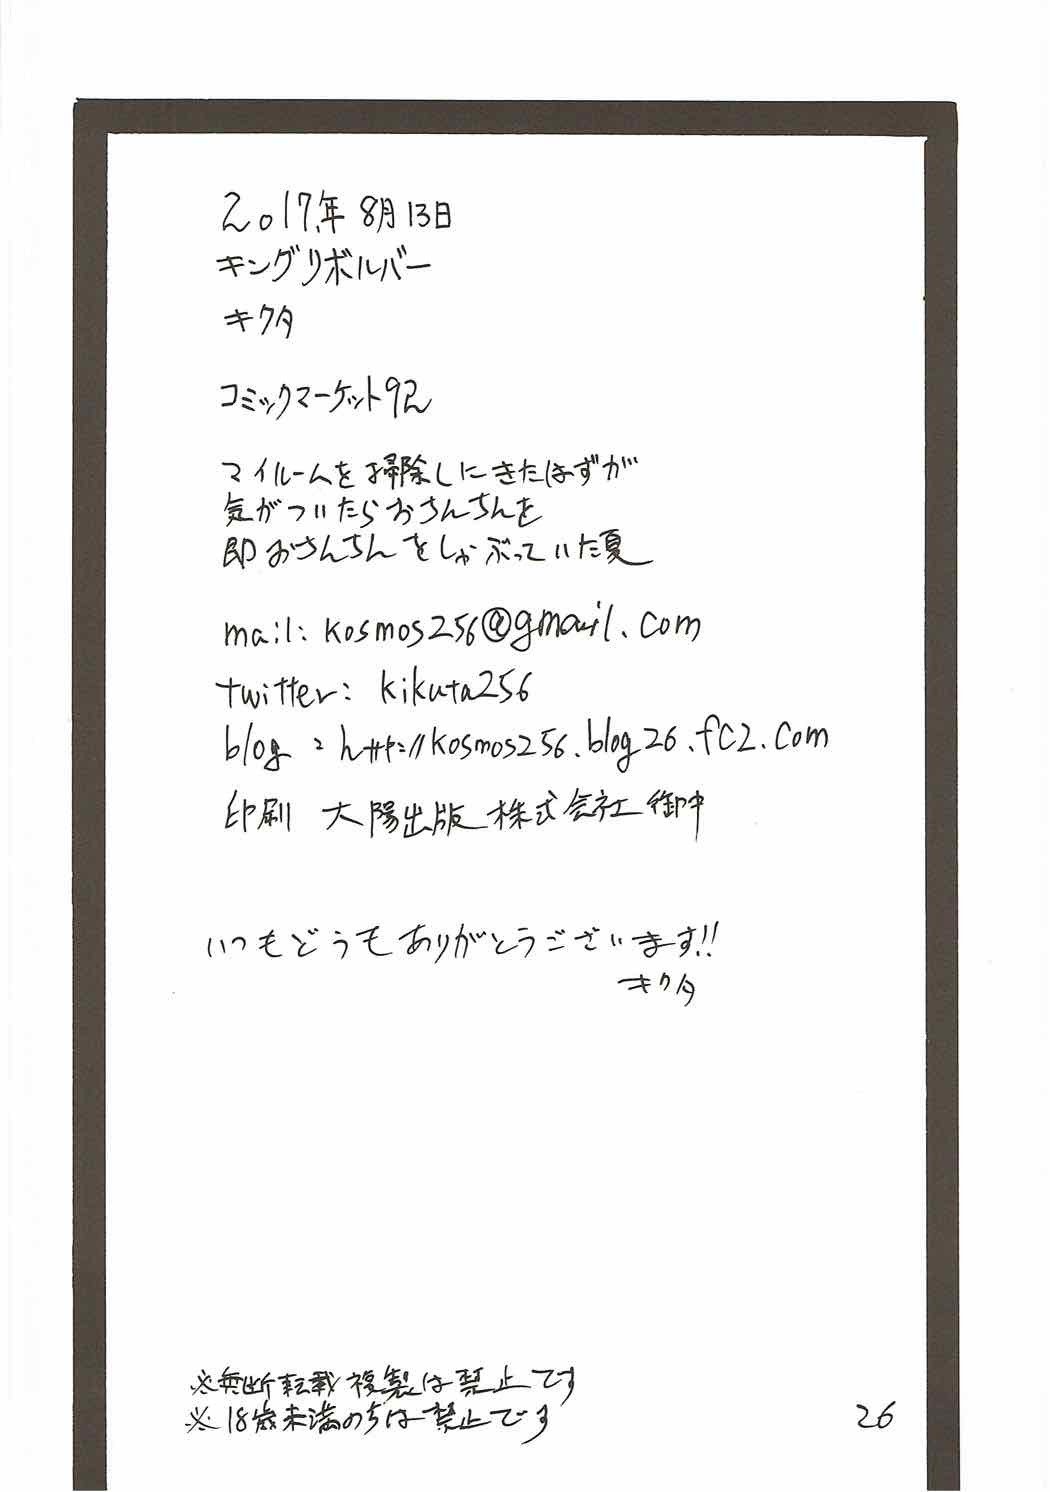 2017年8月13日
キングリボルバー
キクタ
コミックマーケット92
マイルームを掃除しにきたはずが
気がついたらおちんちんを
即おさんちんをしゃぶっていた夏
mail: kosmos256@gmail.com
twitter: kikuta256
blog : http://kosmos256.blog26.fc2.com
印刷 大陽出版株式会社御中
いつもどうもありがとうございます!!
キクタ
※無断転載複製は禁止です
※18歳未満の方は禁止です
26